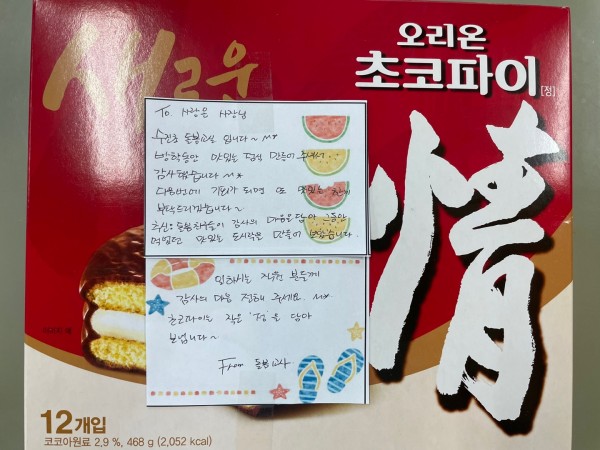 새로운
오리온
초코파이
[정]
情
To. 사랑은 사장님
수진초 돌봄교실 입니다~ ^^*
방학동안 맛있는 급식 만들어 주셔서
감사했습니다~^^*
다음번에 기회가 되면 또 맛있는 한끼
부탁드리겠습니다~
추신: 돌봄친구들이 감사의 마음을 담아 그동안
먹었던 맛있는 도시락은 만들어 보았습니다.
일하시는 직원 분들께
감사의 마음 전해 주세요. ^^*
초코파이는 작은 '정'을 담아
보냅니다~
From 돌봄교사
12개입
코코아원료 2.9 %, 468 g (2,052 kcal)